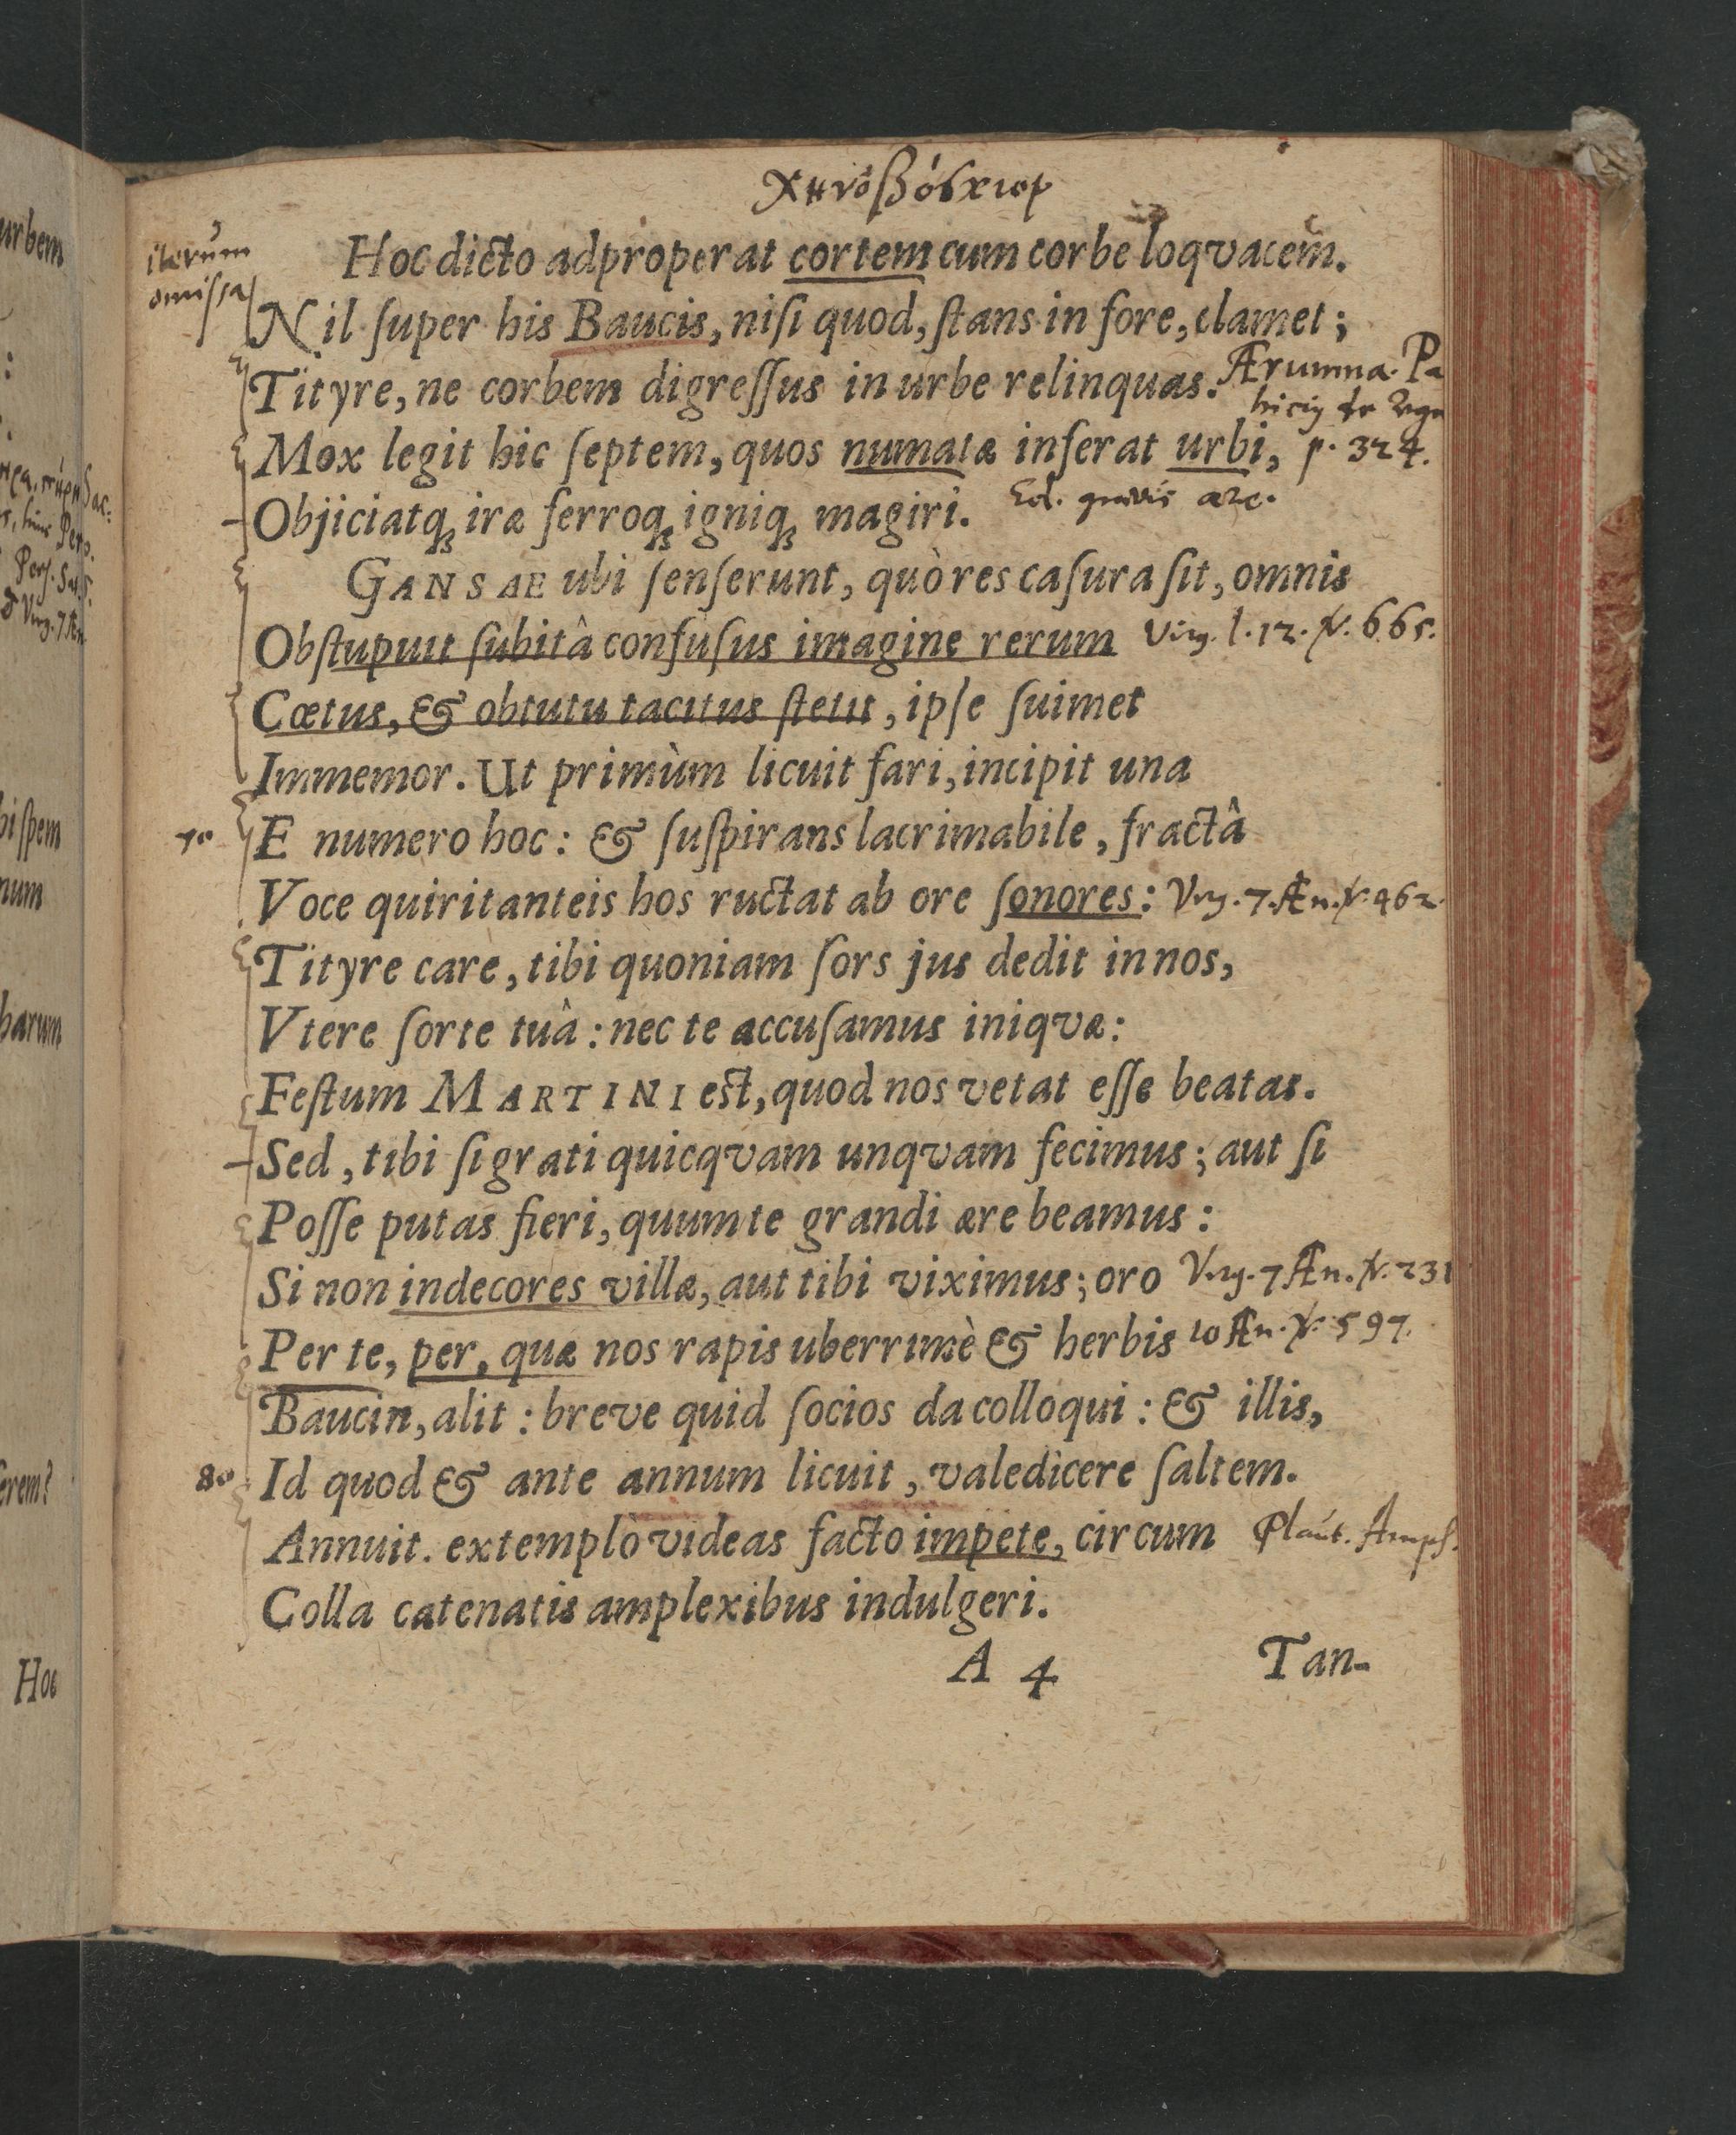 χηνοβόσκιον
iterum
omissa
Hoc dicto adproperat cortem cum corbe loqvacem.
Nil ſuper his Baucis, niſi quod, ſtans in fore, clamet;
Tityre, ne corbem digreſſus in urbe relinquas.
Ærumna. Pa
Mox legit hic ſeptem, quos numatæ inſerat urbi,
p. 324.
Objiciatq; iræ ferroq; igniq; magiri.
GANSAE ubi ſenſerunt, quò res caſura ſit, omnis
Obſtupuit ſubitâ confuſus imagine rerum
Virg. l. 12. ℣. 665.
Cœtus, & obtutu tacitus ſtetit, ipſe ſuimet
Immemor. Ut primùm licuit fari, incipit una
70 E numero hoc: & ſuſpirans lacrimabile, fractâ
Voce quiritanteis hos ructat ab ore ſonores:
Virg. 7. Æn. ℣. 462.
Tityre care, tibi quoniam ſors jus dedit in nos,
Vtere ſorte tuâ: nec te accuſamus iniqvæ:
Feſtum MARTINI eſt, quod nos vetat eſſe beatas.
Sed, tibi ſi grati quicqvam unqvam fecimus; aut ſi
Poſſe putas fieri, quum te grandi ære beamus:
Si non indecores villæ, aut tibi viximus; oro
Virg. 7 Æn. ℣. 231
Per te, per, quæ nos rapis uberrimè & herbis
10 Æn. ℣. 597.
Baucin, alit: breve quid ſocios da colloqui: & illis,
80 Id quod & ante annum licuit, valedicere ſaltem.
Annuit. extemplò videas facto impete, circum
Plaut. Amph.
Colla catenatis amplexibus indulgeri.
A 4 Tan-